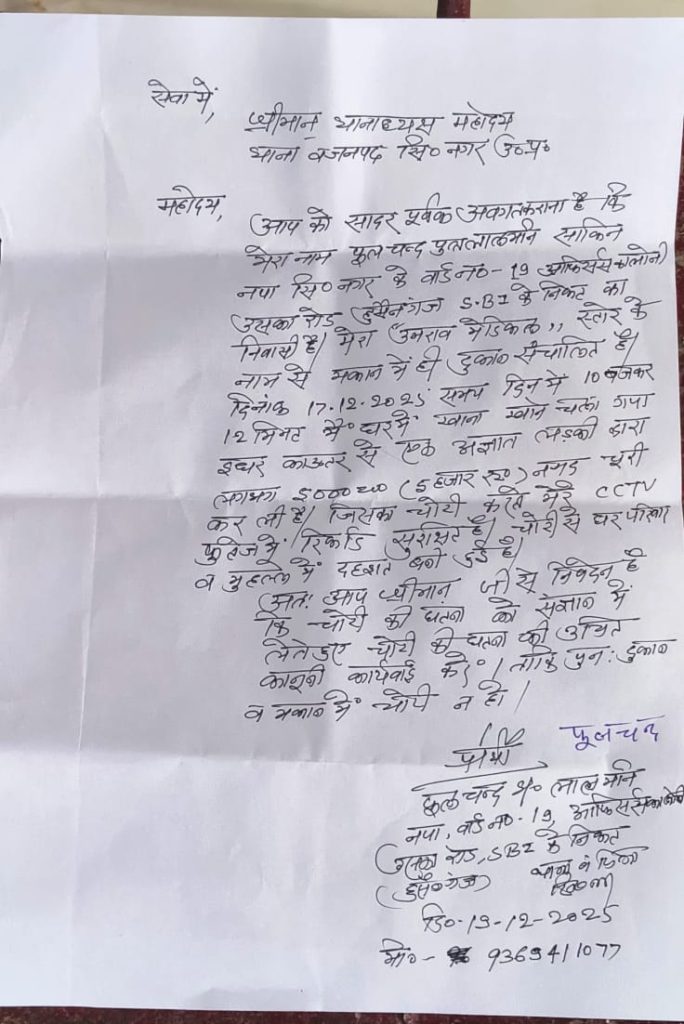 सेवा में,
श्रीमान् थानाध्यक्ष महोदय
थाना व जनपद सि० नगर उ०प्र०
महोदय,
आप को सादर पूर्वक अवगत कराना है कि
मेरा नाम फूलचन्द पुत्र लालमनि साकिन
नपा सि० नगर के वार्ड नं०-19 आफिसर्स कालोनी
उसका रोड हुसैनगंज S.B.I के निकट का
निवासी है। मेरा "उमराव मेडिकल" स्टोर के
नाम से मकान में ही दुकान संचालित है।
दिनांक 17.12.2025 समय दिन में 10 बजकर
12 मिनट मैं घर में खाना खाने चला गया
इधर काऊंटर से एक अज्ञात लड़की द्वारा
लगभग 5000=00 (5 हजार रू०) नगद चोरी
कर ली है। जिसका चोरी करते मेरे CCTV
फुटेज में रिकार्ड सुरक्षित है। चोरी से घर परिवार
व मुहल्ले में दहशत बनी हुई है।
अतः आप श्रीमान् जी से निवेदन है
कि चोरी की घटना को संज्ञान में
लेते हुए चोरी की घटना की उचित
कानूनी कार्यवाई करें। ताकि पुनः दुकान
व मकान में चोरी न हो।
प्रार्थी फूलचन्द
फूलचन्द S/o लालमनि
नपा, वार्ड नं०-19, आफिसर्स कालोनी
उसका रोड, SBI के निकट
(हुसैनगंज) थाना व जिला
दि०-19-12-2025
मो०- 9369411077